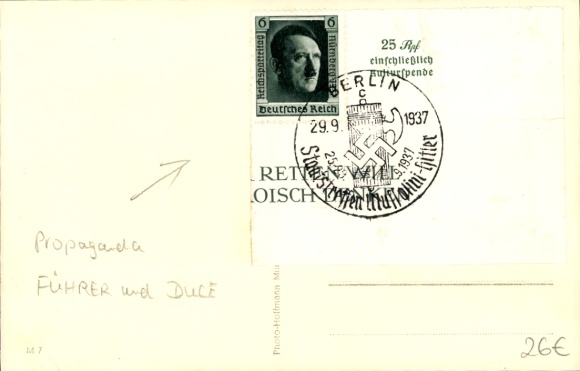 6 6
Reichsparteitag
Nürnberg
Deutsches Reich
25 Rpf
einschließlich
Kulturspende
BERLIN
C
29.9. 1937
25.
9.1937
Staatstreffen Mussolini-Hitler
RETTEN WILL
ROISCH DENKEN
Propaganda
FÜHRER und DUCE
Photo-Hoffmann
M 7
26€